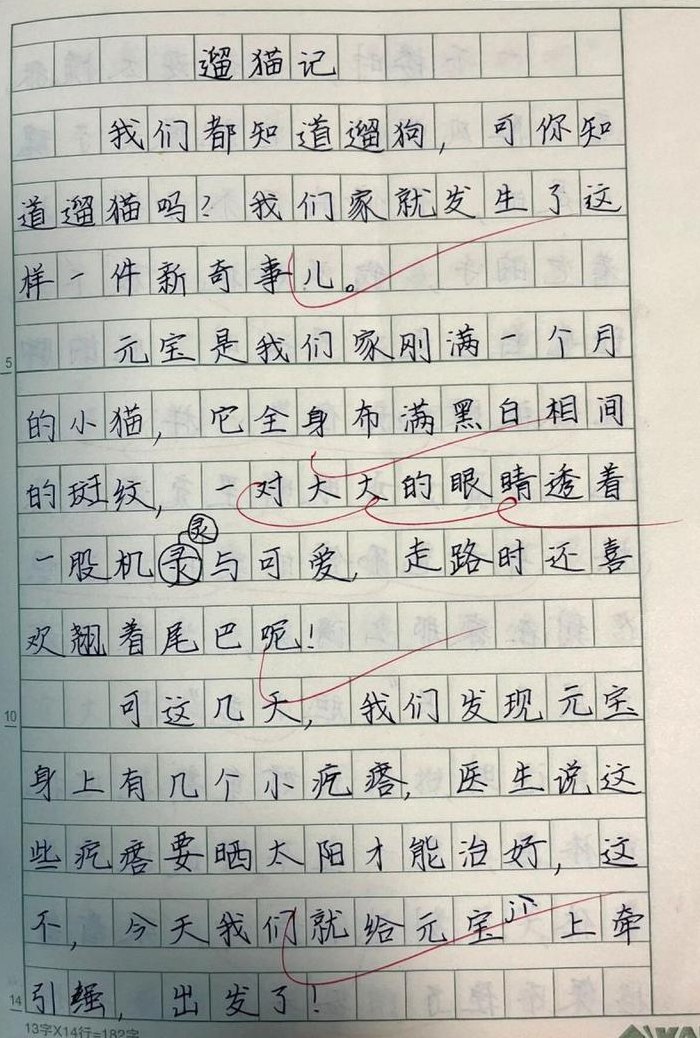 遛猫记
我们都知道遛狗，可你知
道遛猫吗？我们家就发生了这
样一件新奇事儿。
元宝是我们家刚满一个月
5
的小猫，它全身布满黑白相间
的斑纹，一对大大的眼睛透着
灵
一股机灵与可爱，走路时还喜
欢翘着尾巴呢！
可这几天，我们发现元宝
10
身上有几个小疙瘩，医生说这
些疙瘩要晒太阳才能治好，这
不，今天我们就给元宝 上牵
引绳，出发了！
14
13字X14行=182字